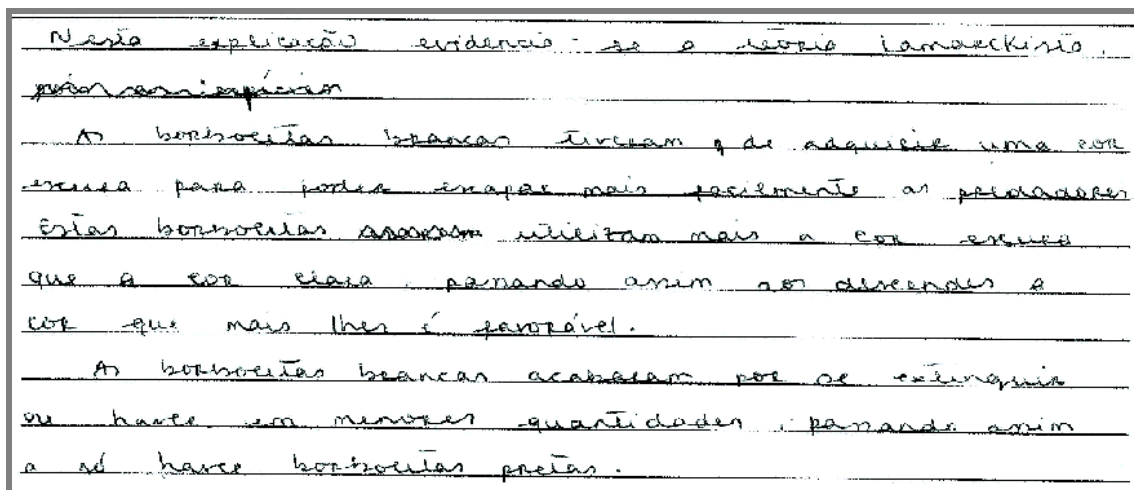 Nesta explicação evidencia-se a teoria lamarckista.
As borboletas brancas tiveram q de adquirir uma cor
escura para poder escapar mais facilmente as predadores
Estas borboletas utilizam mais a cor escura
que a cor clara, passando assim aos descendes a
cor que mais lhes é favorável.
As borboletas brancas acabaram por se extinguir
ou haver em menores quantidades, passando assim
a só haver borboletas pretas.